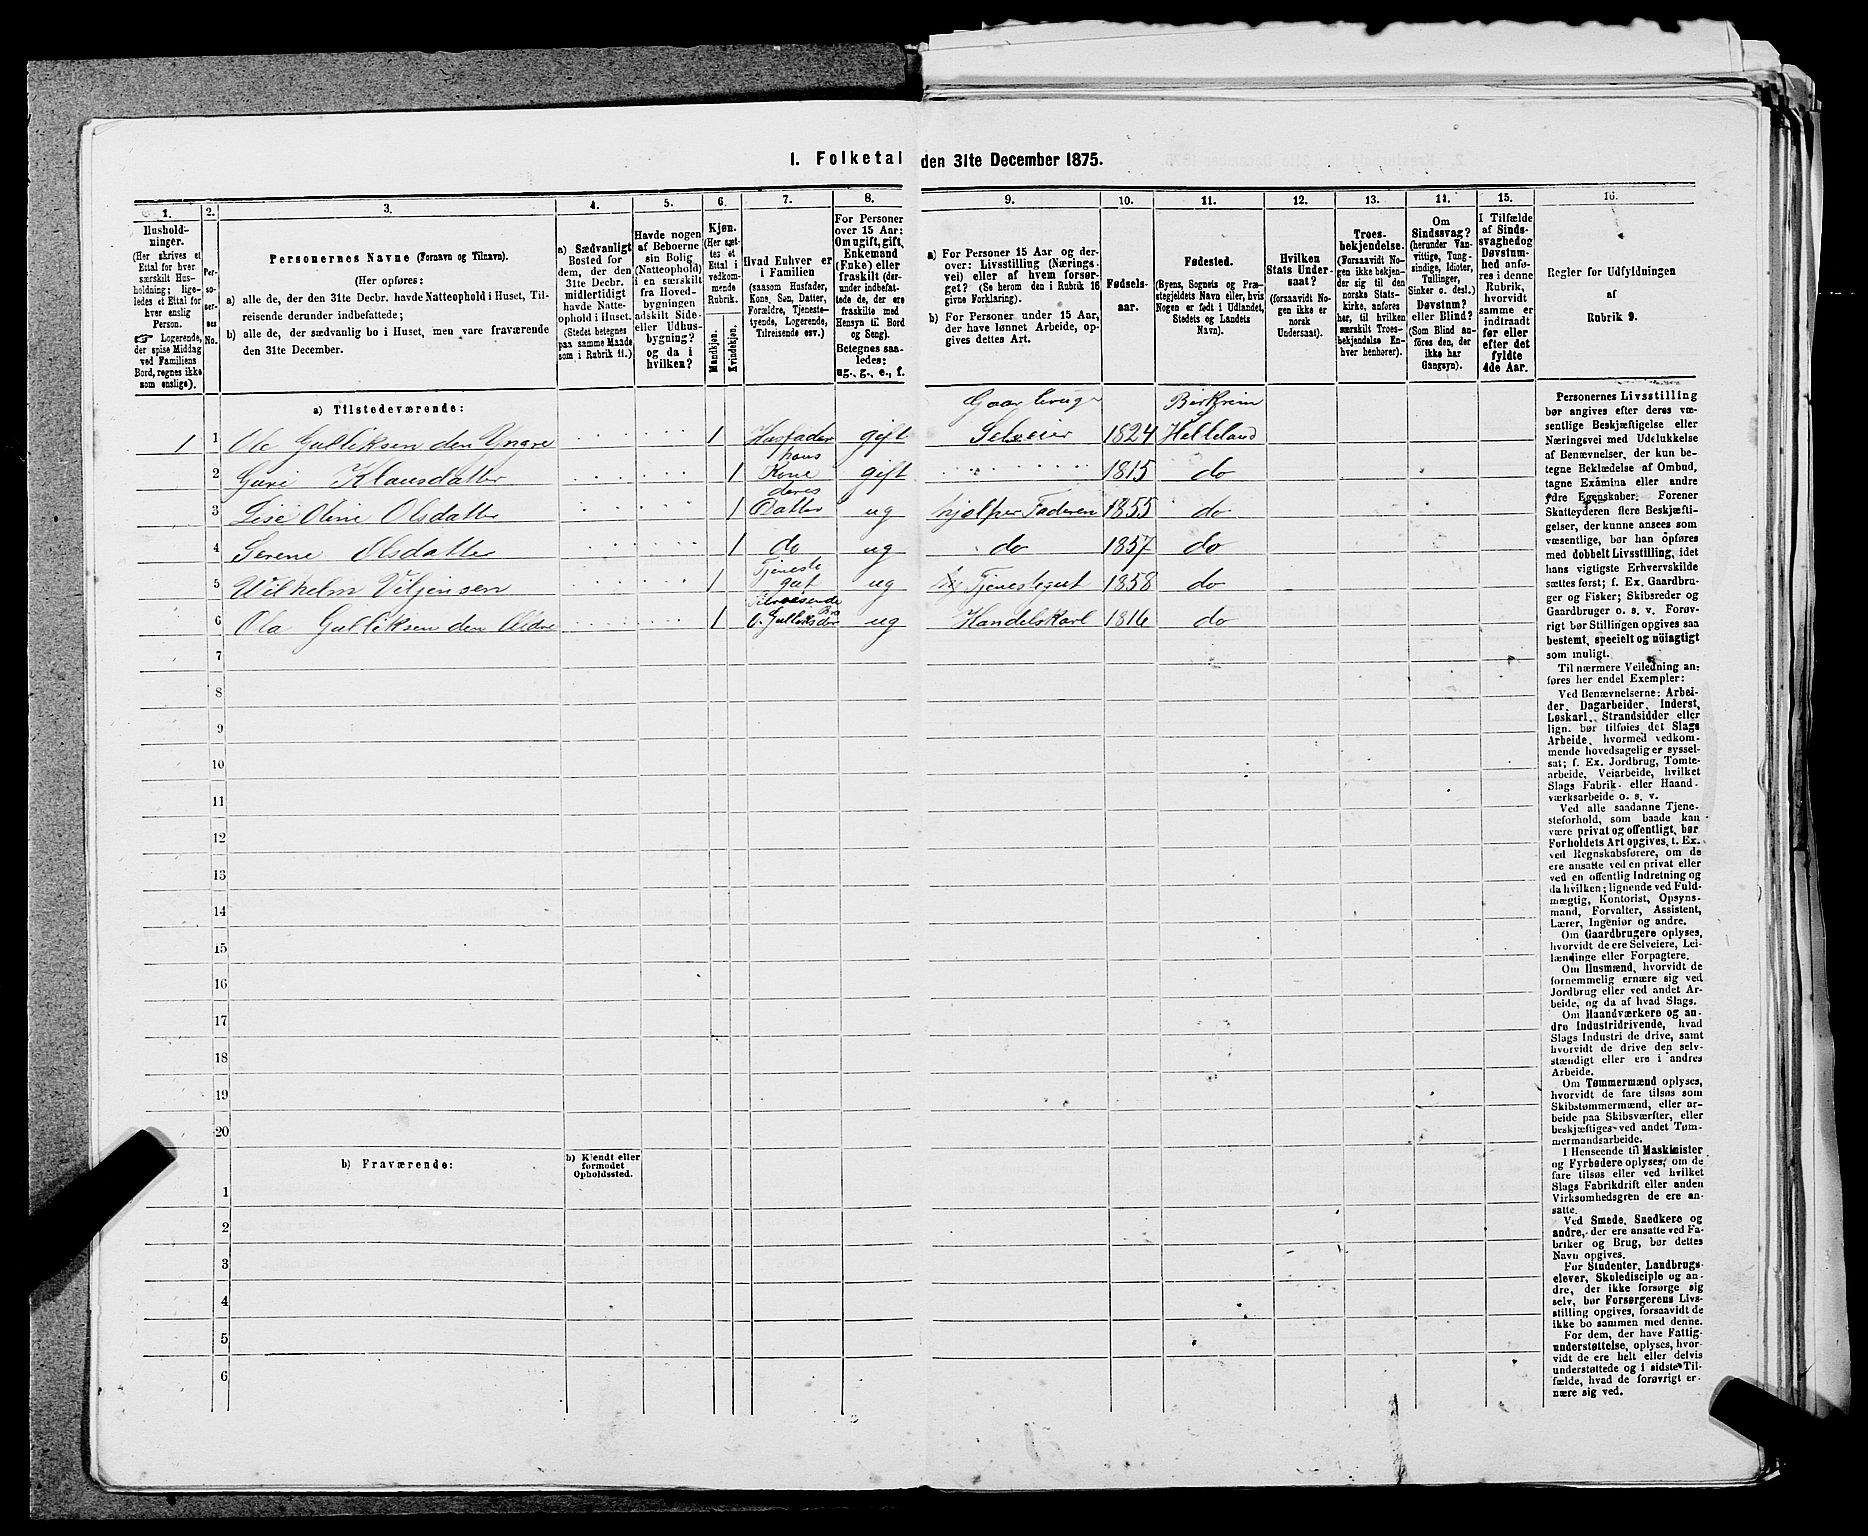 I. Folketal den 31te December 1875.
1.
Hushold-
ninger.
(Her skrives et
Ettal for hver
særskilt Hus-
holdning; lige-
ledes et Ettal for
hver enslig
Person.
☞ Logerende,
der spise Middag
ved Familiens
Bord, regnes ikke
som enslige).
2.
Per-
so-
ner-
nes
No.
3.
Personernes Navne (Fornavn og Tilnavn).
(Her opføres:
a) alle de, der den 31te Decbr. havde Natteophold i Huset, Til-
reisende derunder indbefattede;
b) alle de, der sædvanlig bo i Huset, men vare fraværende
den 31te December.
4.
a) Sædvanligt
Bosted for
dem, der den
31te Decbr.
midlertidigt
havde Natte-
ophold i Huset.
(Stedet betegnes
paa samme Maade
som i Rubrik 11.)
5.
Havde nogen
af Beboerne
sin Bolig
(Natteophold)
i en særskilt
fra Hoved-
bygningen
adskilt Side-
eller Udhus-
bygning?
og da i
hvilken?
6.
Kjøn.
(Her sæt-
tes et
Ettal i
vedkom-
mende
Rubrik.
Mandkjøn.
Kvindekjøn.
7.
Hvad Enhver er
i Familien
(saasom Husfader,
Kone, Søn, Datter,
Forældre, Tjeneste-
tyende, Logerende,
Tilreisende osv.).
8.
For Personer
over 15 Aar:
Om ugift, gift,
Enkemand
(Enke) eller
fraskilt (der-
under indbefat-
tede de, der ere
fraskilte med
Hensyn til Bord
og Seng).
Betegnes saa-
ledes:
ug., g., e., f.
9.
a) For Personer 15 Aar og der-
over: Livsstilling (Nærings-
vei) eller af hvem forsør-
get? (Se herom den i Rubrik 16
givne Forklaring).
b) For Personer under 15 Aar,
der have lønnet Arbeide, op-
gives dettes Art.
10.
Fødsels-
aar.
11.
Fødested.
(Byens, Sognets og Præ-
stegjeldets Navn eller, hvis
Nogen er født i Udlandet,
Stedets og Landets
Navn).
12.
Hvilken
Stats Under-
saat?
(forsaavidt No-
gen ikke er
norsk
Undersaat).
13.
Troes-
bekjendelse.
(Forsaavidt No-
gen ikke bekjen-
der sig til den
norske Stats-
kirke, anføres
her, til hvilken
særskilt Troes-
bekjendelse En-
hver henhører).
14.
Om
Sindssvag?
(herunder Van-
vittige, Tung-
sindige, Idioter,
Tullinger,
Sinker o. desl.)
Døvstum?
eller Blind?
(Som Blind an-
føres den, der
ikke har
Gangsyn).
15.
I Tilfælde
af Sinds-
svaghed og
Døvstum-
hed anfø-
res i denne
Rubrik,
hvorvidt
samme er
indtraadt
før eller
efter det
fyldte
4de Aar.
16.
Regler for Udfyldningen
af
Rubrik 9.
a) Tilstedeværende:
Gaardbruger Birkrem
1 1 Ole Gulliksen den Yngre 1 Husfader gift Selveier 1824 Helleland
2 Guri Klausdatter 1 hans Kone gift 1815 do
3 Lise Oline Olsdatter 1 deres Datter ug hjælper Faderen 1855 do
4 Serene Olsdatter 1 do ug do 1857 do
5 Wilhelm Viljensen 1 Tjeneste gut ug Tjenestegut 1858 do
6 Ola Gulliksen den Eldre 1 O. Gulliksens Bro ug Handelskarl 1816 do
7
8
9
10
11
12
13
14
15
16
17
18
19
20
b) Fraværende:
b) Kjendt eller
formodet
Opholdssted.
1
2
3
4
5
6
Personernes Livsstilling
bør angives efter deres væ-
sentlige Beskjæftigelse eller
Næringsvei med Udelukkelse
af Benævnelser, der kun be-
tegne Beklædelse af Ombud,
tagne Examina eller andre
ydre Egenskaber. Forener
Skatteyderen flere Beskjæfti-
gelser, der kunne ansees som
væsentlige, bør han opføres
med dobbelt Livsstilling, idet
hans vigtigste Erhvervskilde
sættes først; f. Ex. Gaardbru-
ger og Fisker; Skibsreder og
Gaardbruger o. s. v. Forøv-
rigt bør Stillingen opgives saa
bestemt, specielt og nöiagtigt
som muligt.
Til nærmere Veiledning an-
føres her endel Exempler:
Ved Benævnelserne: Arbei-
der, Dagarbeider, Inderst,
Løskarl, Strandsidder eller
lign. bør tilføies det Slags
Arbeide, hvormed vedkom-
mende hovedsagelig er syssel-
sat; f. Ex. Jordbrug, Tomte-
arbeide, Veiarbeide, hvilket
Slags Fabrik- eller Haand-
værksarbeide o. s. v.
Ved alle saadanne Tjene-
steforhold, som baade kan
være privat og offentligt, bør
Forholdets Art opgives, t. Ex.
ved Regnskabsførere, om de
ere ansatte ved en privat eller
ved en offentlig Indretning og
da hvilken; lignende ved Fuld-
mægtig, Kontorist, Opsyns-
mand, Forvalter, Assistent,
Lærer, Ingeniør og andre.
Om Gaardbrugere oplyses,
hvorvidt de ere Selveiere, Lei-
lændinge eller Forpagtere.
Om Husmænd, hvorvidt de
fornemmelig ernære sig ved
Jordbrug eller ved andet Ar-
beide, og da af hvad Slags.
Om Haandværkere og an-
dre Industridrivende, hvad
Slags Industri de drive, samt
hvorvidt de drive den selv-
stændigt eller ere i andres
Arbeide.
Om Tømmermænd oplyses,
hvorvidt de fare tilsøs som
Skibstømmermænd, eller ar-
beide paa Skibsværfter, eller
beskjæftiges ved andet Tøm-
mermandsarbeide.
I Henseende til Maskinister
og Fyrbødere oplyses, om de
fare tilsøs eller ved hvilket
Slags Fabrikdrift eller anden
Virksomhedsgren de ere an-
satte.
Ved Smede, Snedkere og
andre, der ere ansatte ved Fa-
briker og Brug, bør dettes
Navn opgives.
For Studenter, Landbrugs-
elever, Skoledisciple og an-
dre, der ikke forsørge sig
selv, bør Forsørgerens Livs-
stilling opgives, forsaavidt de
ikke bo sammen med denne.
For dem, der have Fattig-
understøttelse, oplyses, hvor-
vidt de ere helt eller delvis
understøttede og i sidste Til-
fælde, hvad de forøvrigt er-
nære sig ved.